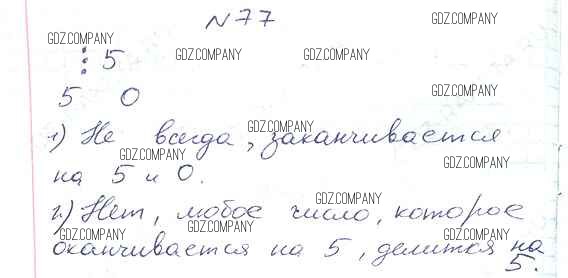 №77
GDZ.COMPANY
GDZ.COMPANY
⋮ 5
GDZ.COMPANY
GDZ.COMPANY
5 0
GDZ.COMPANY
1) Не всегда, заканчивается
GDZ.COMPANY
GDZ.COMPANY
GDZ.COMPANY
на 5 и 0.
GDZ.COMPANY
2) Нет, любое число, которое
GDZ.COMPANY
GDZ.COMPANY
GDZ.COMPANY
оканчивается на 5, делится на
5.